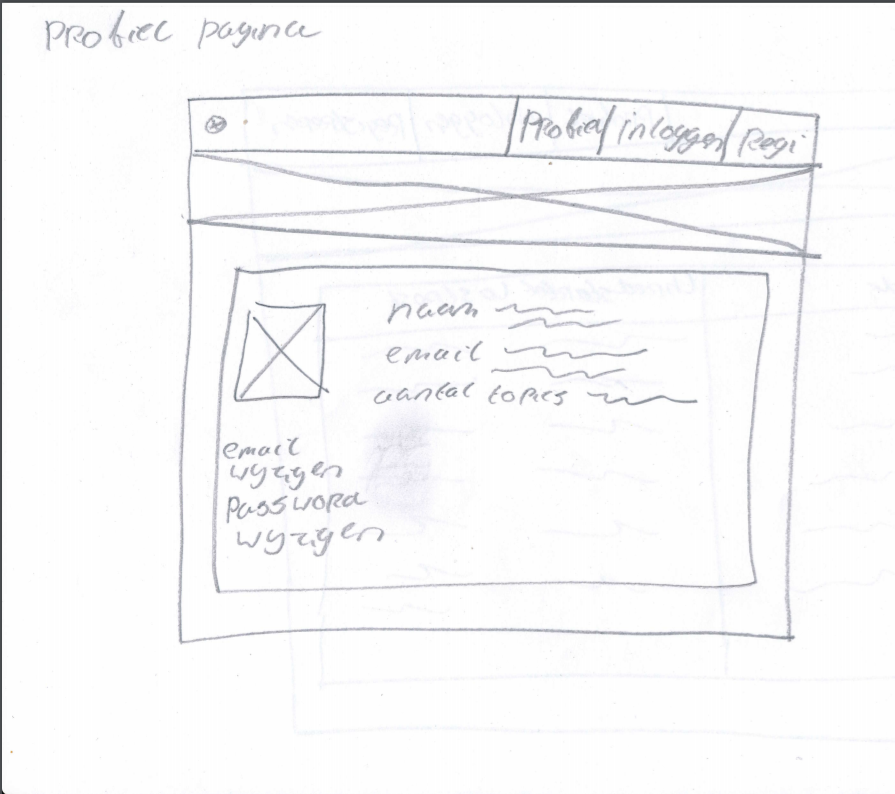 Profiel pagina
Profiel inloggen Regi
naam
email
aantal topics
email
wyzigen
password
wyzigen